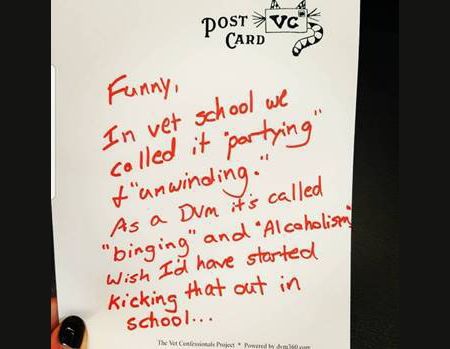 POST
CARD
VC
Funny,
In vet school we
called it "partying"
& "unwinding."
As a DVM it's called
"binging" and "Alcoholism"
Wish I'd have started
kicking that out in
school...
The Vet Confessionals Project * Powered by dvm360.com